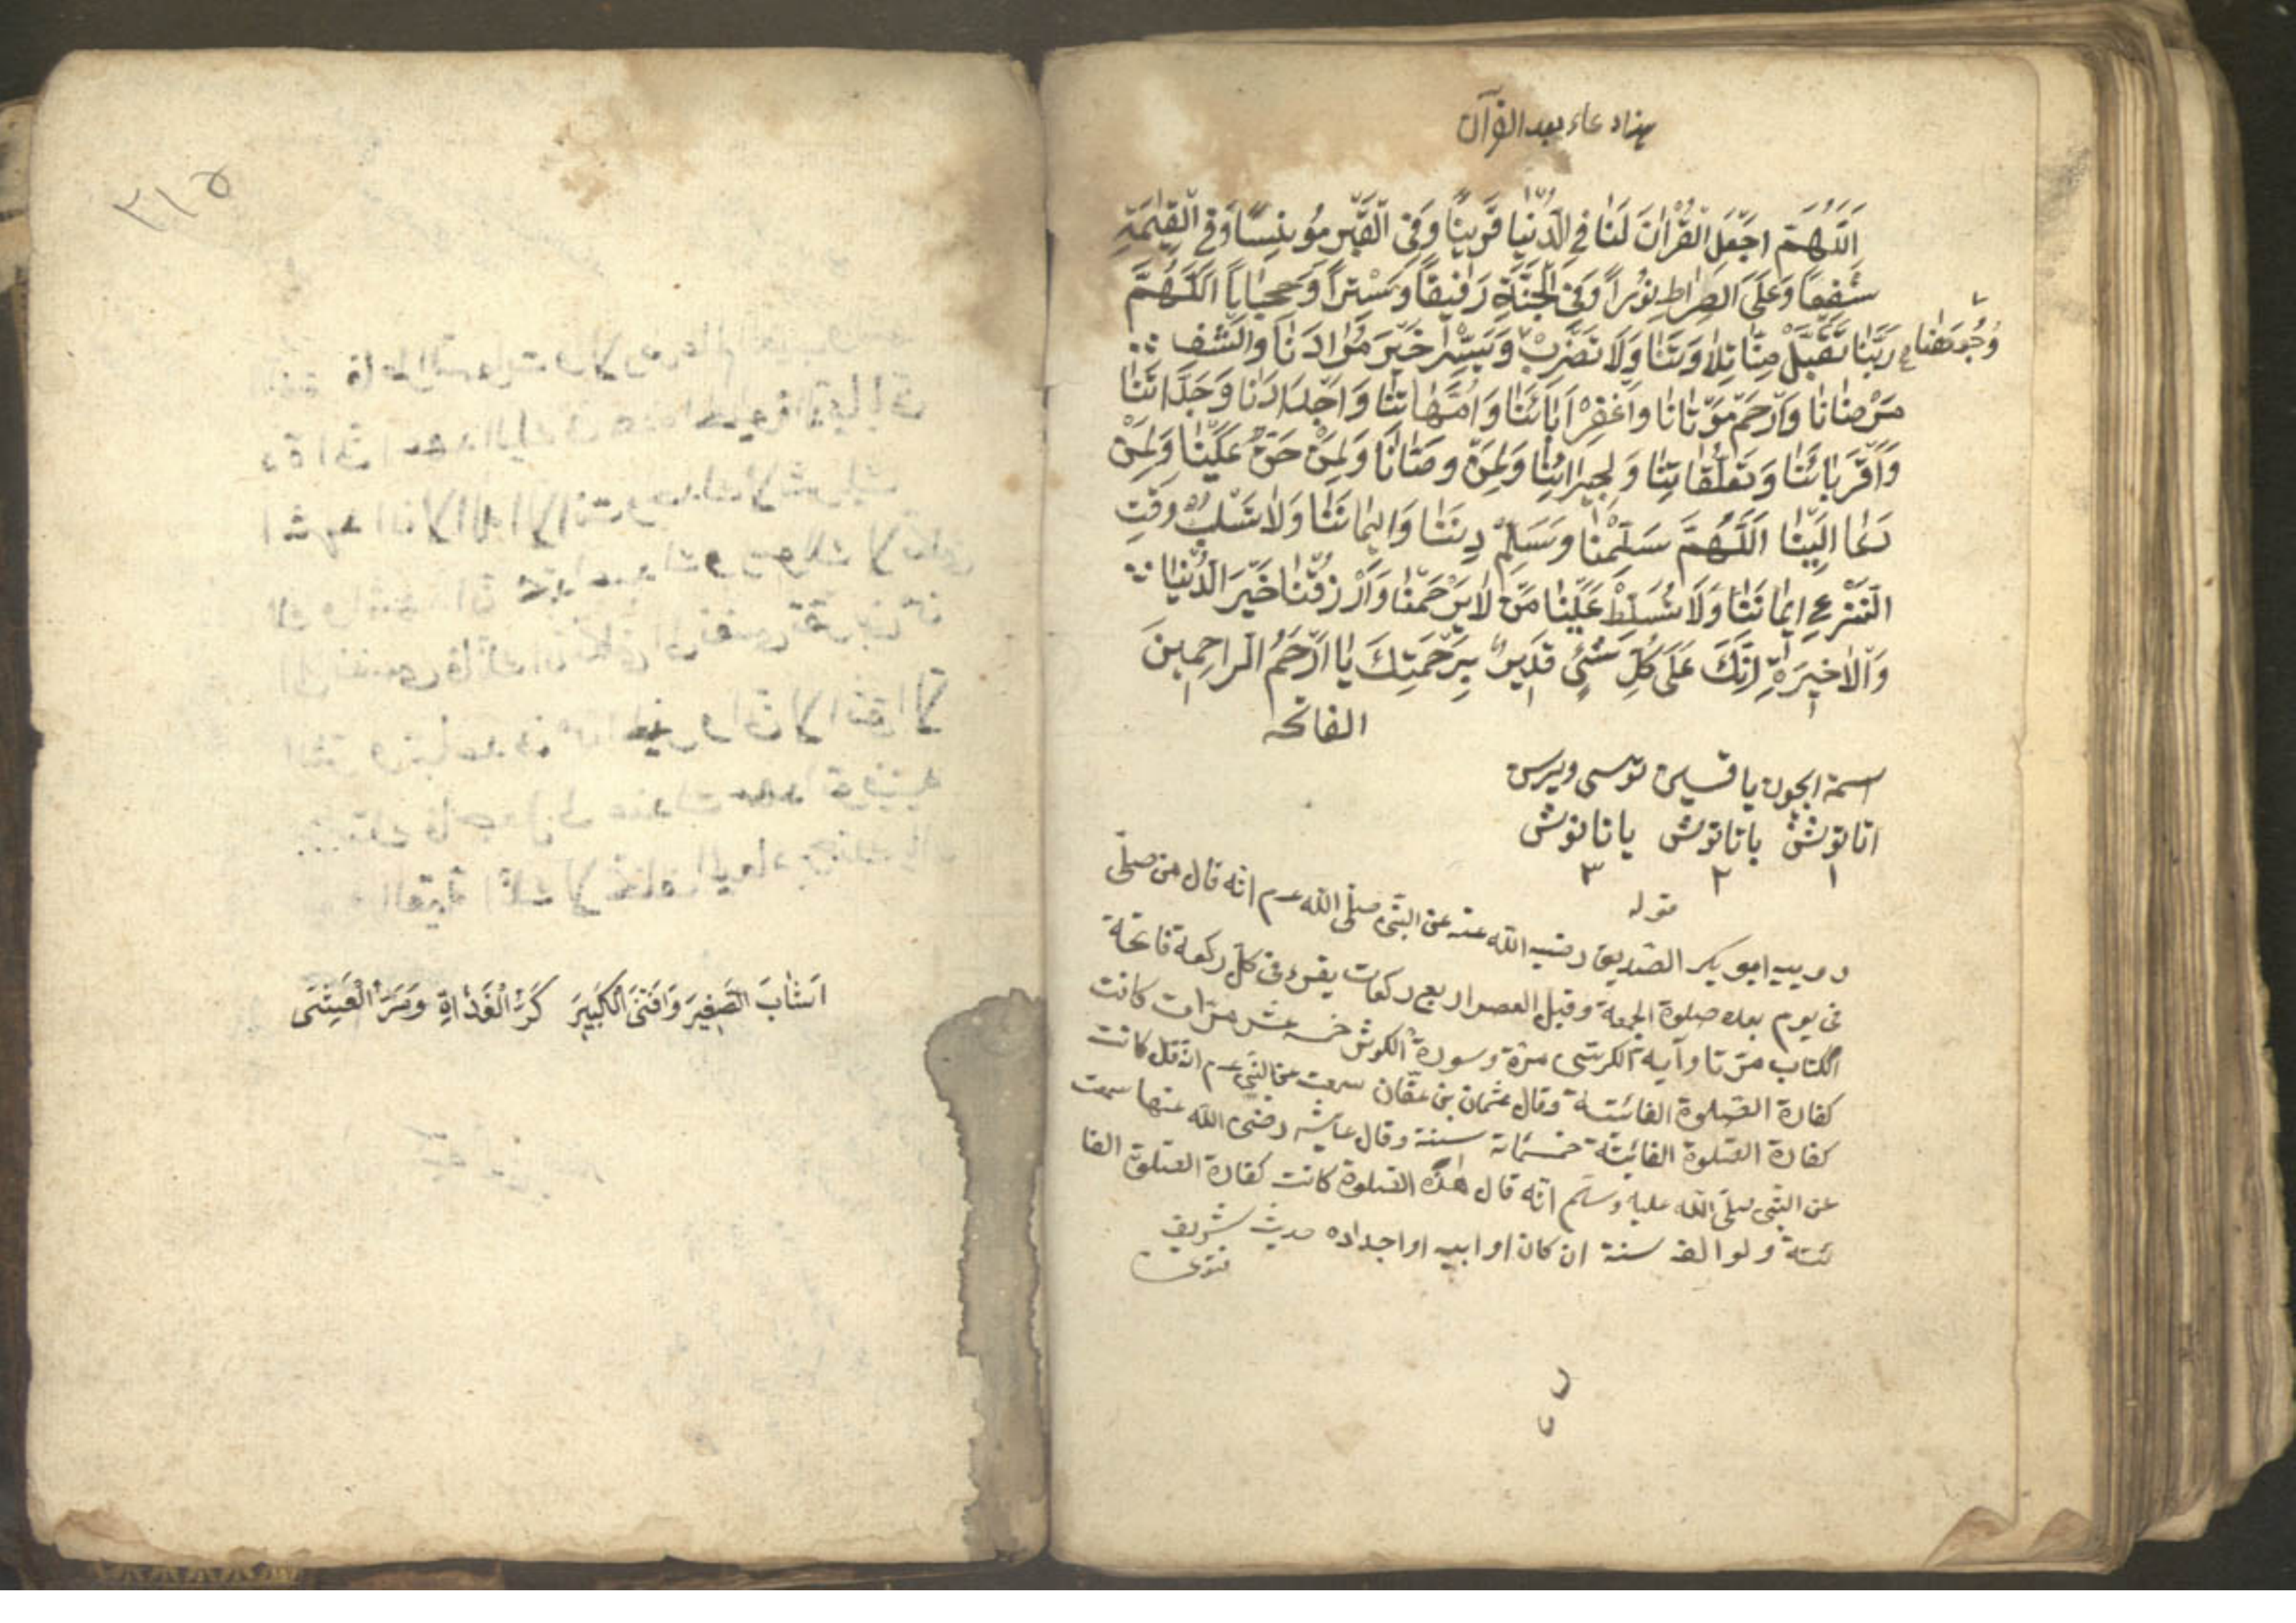 هذا دعاء بعد القرآن
اَللّٰهُمَّ اجْعَلِ الْقُرْاٰنَ لَنَا فِي الدُّنْيَا قَرِينًا وَفِى الْقَبْرِ مُونِسًا وَفِي الْقِيٰمَةِ
شَفِعًا وَعَلَى الصِّرَاطِ نُورًا وَفِى الْجَنَّةِ رَفِيقًا وَسِتْرًا وَحِجَابًا اَللّٰهُمَّ
رَبَّنَا تَقَبَّلْ مِنَّا تِلَاوَتَنَا وَلَا تَضْرِبْ وَيَسِّرْ خَيْرَ مُرَادَنَا وَاشْفِ
مَرْضَانَا وَارْحَمْ مَوْتَانَا وَاغْفِرْ اٰبَائَنَا وَاُمَّهَاتَنَا وَاَجْدَادَنَا وَجَدَّاتَنَا
وَاَقْرَبَائَنَا وَتَعَلُّقَاتِنَا وَلِجِيرَانِنَا وَلِمَنْ وَصَّانَا وَلِمَنْ حَقٌّ عَلَيْنَا وَلِمَنْ
دَعَا اِلَيْنَا اَللّٰهُمَّ سَلِّمْنَا وَسَلِّمْ دِينَنَا وَاِيمَانَنَا وَلَا تَسْلُبْ وَقْتِ
النَّزْعِ اِيمَانَنَا وَلَا تُسَلِّطْ عَلَيْنَا مَنْ لَا يَرْحَمْنَا وَارْزُقْنَا خَيْرَ الدُّنْيَا
وَالْاٰخِيرَةِ اِنَّكَ عَلَى كُلِّ شَيْئٍ قَدِيرٌ بِرَحْمَتِكَ يَا اَرْحَمُ الرَاحِمِينَ
الفاتحه
اتانوش ياتانوش ياتانوش
١ ٢ ٣
ابو بكر الصديق رضى الله عنه عن النبى صلى الله عـ م انه قال من صلى
فى يوم بعد صلوة الجمعة وقبل العصر اربع ركعات يقرء فى كل ركعة فاتحة
الكتاب مرتا وآية الكرسى مرة وسورة الكوثر خمسه عشر مرات كانت
كفارة الصلوة الفائتة وقال عثمان بن عفان سمعت عن النبى عـ م انه قال كانت
كفارة الصلوة الفائتة خمسمائة سنة وقال عايشه رضى الله عنها سمعت
عن النبى صلى الله عليه وسلم انه قال هذه الصلوة كانت كفارة الصلوة الفا
ئتة ولو الف سنة ان كان او ابيه او اجداده حديث شريف
٣١٥
اَشَابَ الصَّغِيرَ وَاَفْنَى الْكَبِيرَ كَرُّ الْغَدَاةِ وَمَرُّ الْعَشِىَ